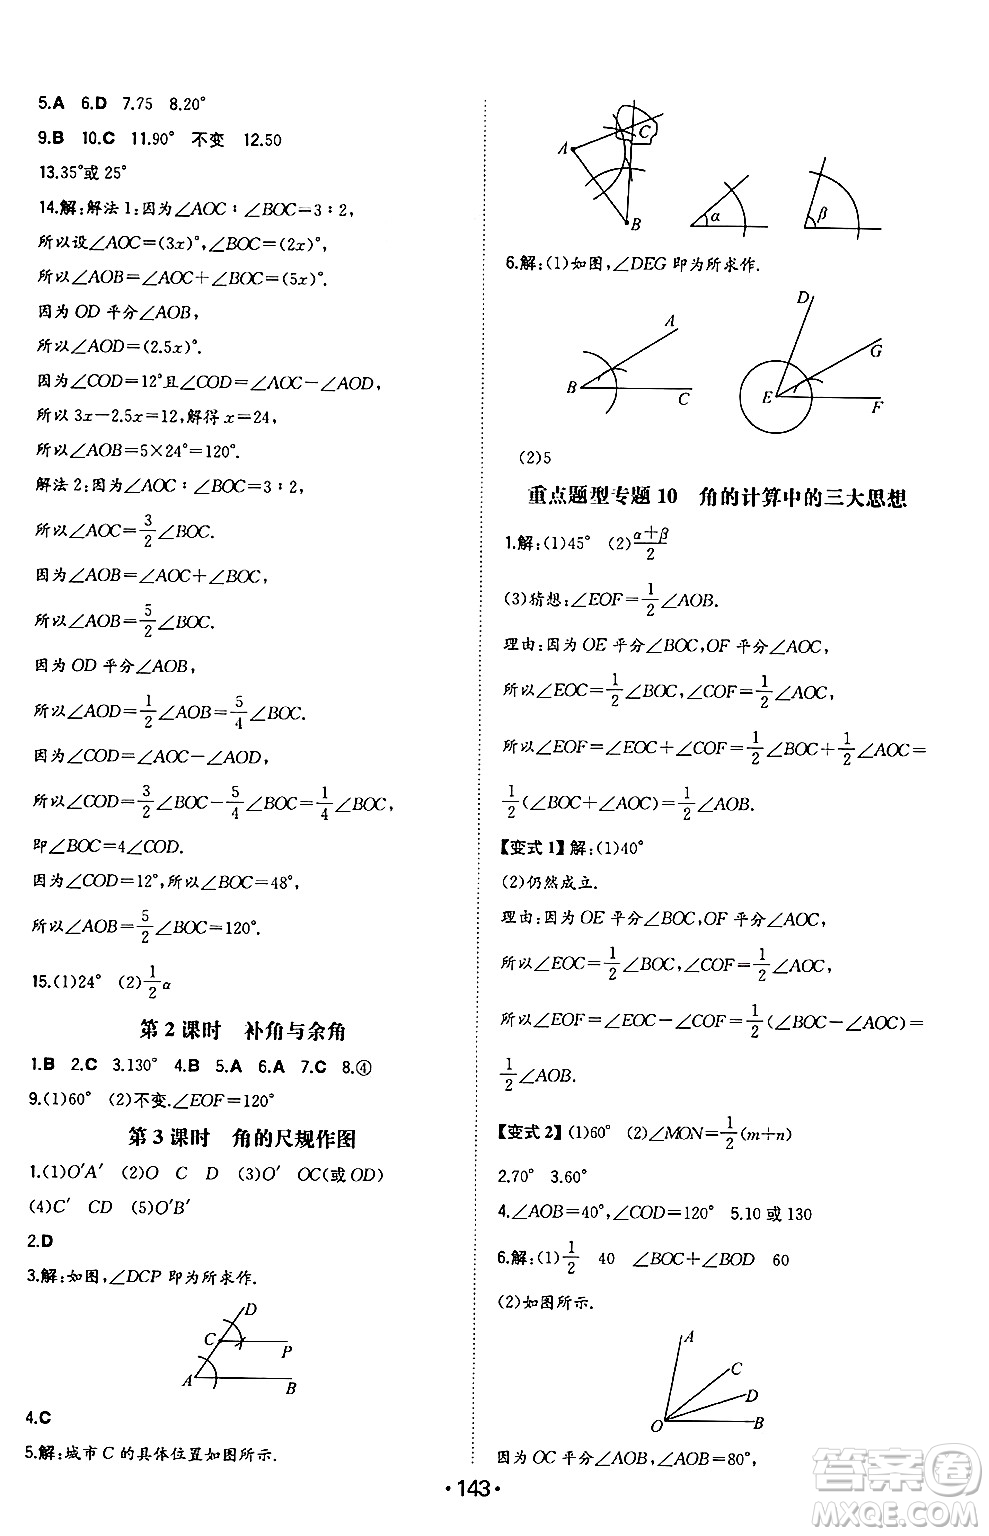 5.A 6.D 7.75 8.20°
9.B 10.C 11.90° 不变 12.50
13.35°或 25°
14.解:解法 1:因为∠AOC∶∠BOC=3∶2,
所以设∠AOC=(3x)°,∠BOC=(2x)°.
所以∠AOB=∠AOC+∠BOC=(5x)°.
因为 OD 平分∠AOB,
所以∠AOD=(2.5x)°.
因为∠COD=12°且∠COD=∠AOC-∠AOD,
所以 3x-2.5x=12,解得 x=24,
所以∠AOB=5×24°=120°.
解法 2:因为∠AOC∶∠BOC=3∶2,
所以∠AOC=3/2∠BOC.
因为∠AOB=∠AOC+∠BOC,
所以∠AOB=5/2∠BOC.
因为 OD 平分∠AOB,
所以∠AOD=1/2∠AOB=5/4∠BOC.
因为∠COD=∠AOC-∠AOD,
所以∠COD=3/2∠BOC-5/4∠BOC=1/4∠BOC,
即∠BOC=4∠COD.
因为∠COD=12°,所以∠BOC=48°,
所以∠AOB=5/2∠BOC=120°.
15.(1)24° (2)1/2α
第 2 课时 补角与余角
1.B 2.C 3.130° 4.B 5.A 6.A 7.C 8.④
9.(1)60° (2)不变.∠EOF=120°
第 3 课时 角的尺规作图
1.(1)O′A′ (2)O C D (3)O OC(或 OD)
(4)C′ CD (5)O′B′
2.D
3.解:如图,∠DCP 即为所求作.
D
C
P
A
B
4.C
5.解:城市 C 的具体位置如图所示.
C
A
B
α
β
6.解:(1)如图,∠DEG 即为所求作.
A
B
C
D
G
E
F
(2)5
重点题型专题 10 角的计算中的三大思想
1.解:(1)45° (2)(α+β)/2
(3)猜想:∠EOF=1/2∠AOB.
理由:因为 OE 平分∠BOC,OF 平分∠AOC,
所以∠EOC=1/2∠BOC,∠COF=1/2∠AOC,
所以∠EOF=∠EOC+∠COF=1/2∠BOC+1/2∠AOC=
1/2(∠BOC+∠AOC)=1/2∠AOB.
【变式 1】解:(1)40°
(2)仍然成立.
理由:因为 OE 平分∠BOC,OF 平分∠AOC,
所以∠EOC=1/2∠BOC,∠COF=1/2∠AOC,
所以∠EOF=∠EOC-∠COF=1/2(∠BOC-∠AOC)=
1/2∠AOB.
【变式 2】(1)60° (2)∠MON=1/2(m+n)
2.70° 3.60°
4.∠AOB=40°,∠COD=120° 5.10 或 130
6.解:(1)1/2 40 ∠BOC ∠BOD 60
(2)如图所示.
A
C
D
O
B
因为 OC 平分∠AOB,∠AOB=80°,
·143·
答案圈
MXQE.COM